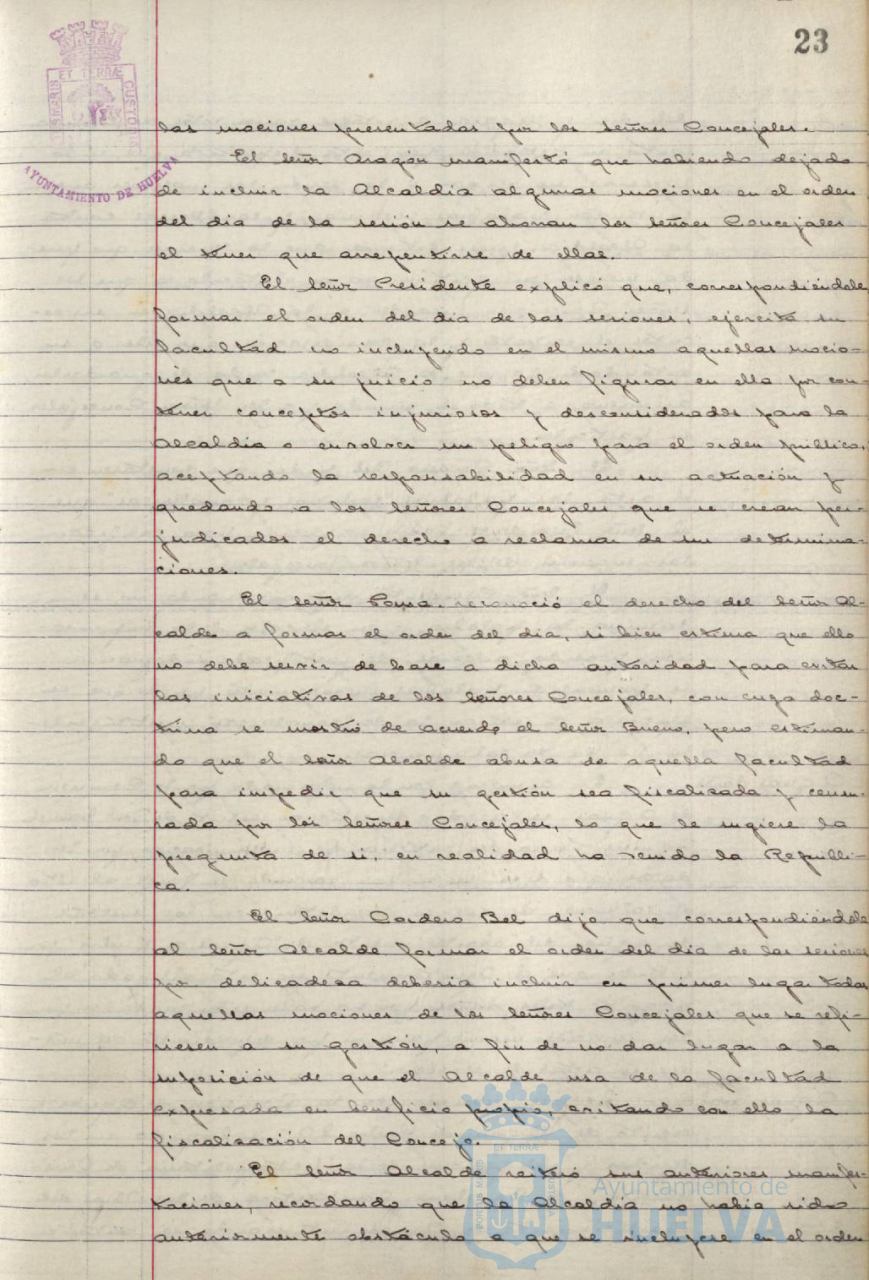 23
ET TERRÆ
MARIS
CUSTODIA
AYUNTAMIENTO DE HUELVA
las mociones presentadas por los señores Concejales.
El señor Aragón manifestó que habiendo dejado
de incluir la Alcaldia algunas mociones en el orden
del dia de la sesión se ahorran los señores Concejales
el tener que arrepentirse de ellas.
El señor Presidente explicó que, correspondiéndole
formar el orden del dia de las sesiones, ejercita su
facultad no incluyendo en el mismo aquellas mocio-
nes que a su juicio no deben figurar en ella por con-
tener conceptos injuriosos y desconsiderados para la
Alcaldia o envolver un peligro para el orden publico,
aceptando la responsabilidad en su actuación y
quedando a los señores Concejales que se crean per-
judicados el derecho a reclamar de sus determina-
ciones.
El señor reconoció el derecho del señor Al-
calde a formar el orden del dia, si bien estima que ello
no debe servir de base a dicha autoridad para evitar
las iniciativas de los señores Concejales, con cuya doc-
trina se mostró de acuerdo el señor Bueno, pero estiman-
do que el señor Alcalde abusa de aquella facultad
para impedir que su gestión sea fiscalizada y censu-
rada por los señores Concejales, lo que le sugiere la
pregunta de si, en realidad ha venido la Republi-
ca.
El señor Cordero Bel dijo que correspondiéndole
al señor Alcalde formar el orden del dia de las sesiones
por delicadeza deberia incluir en primer lugar todas
aquellas mociones de los señores Concejales que se refi-
riesen a su gestión, a fin de no dar lugar a la
suposición de que el Alcalde usa de la facultad
expresada en beneficio propio, evitando con ello la
fiscalización del Concejo.
El señor Alcalde reiteró sus anteriores manifes-
taciones, recordando que la Alcaldia no habia sido
anteriormente obstáculo a que se incluyese en el orden
Ayuntamiento de
HUELVA